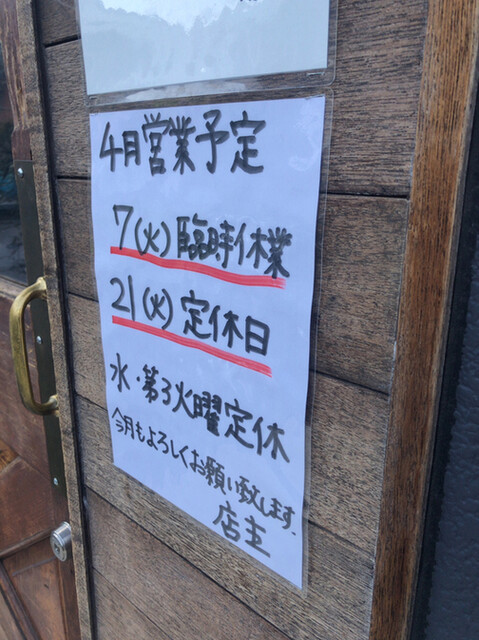 4月営業予定
7(火)臨時休業
21(火)定休日
水・第3火曜定休
今月もよろしくお願い致します.
店主